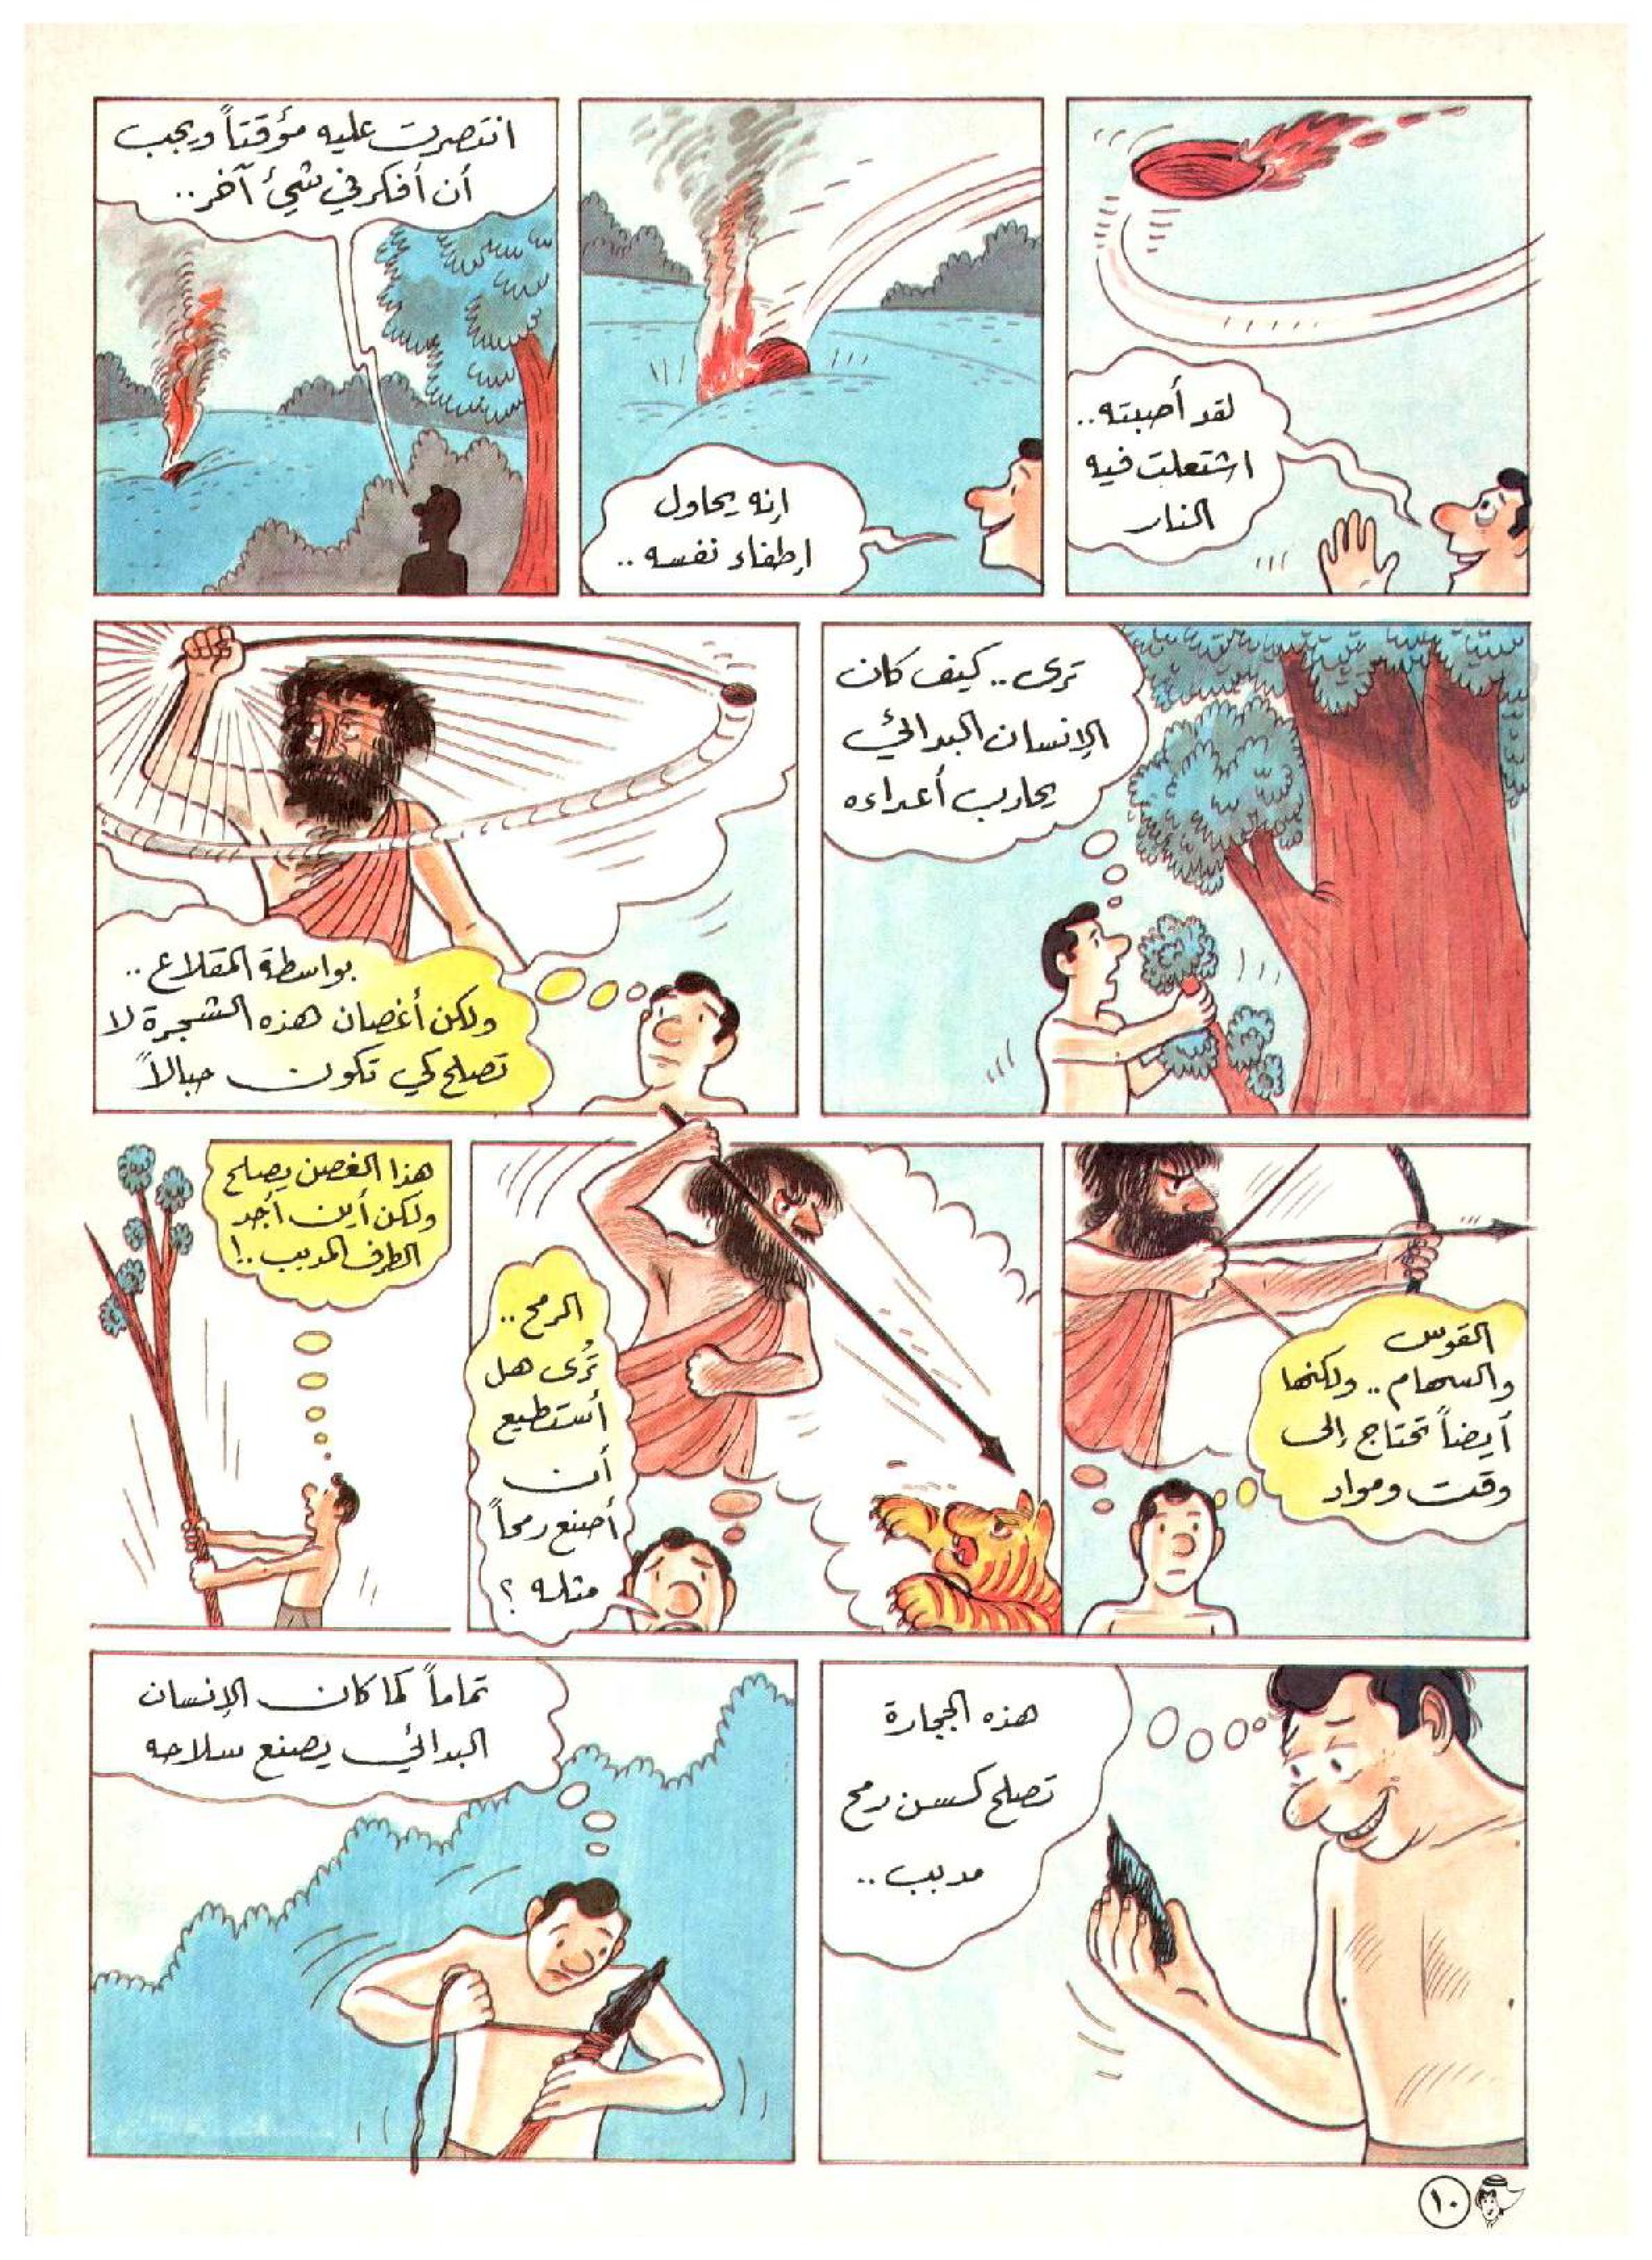 لقد أصبته..
اشتعلت فيه
النار
إنه يحاول
إطفاء نفسه ..
انتصرت عليه مؤقتاً ويجب
أن أفكر في شيئ آخر..
ترى.. كيف كان
الإنسان البدائي
يحارب أعداءه
بواسطة المقلاع ..
ولكن أغصان هذه الشجرة لا
تصلح كي تكون حبالاً
القوس
والسهام .. ولكنها
أيضاً تحتاج إلى
وقت ومواد
الرمح ..
تُرى هل
أستطيع
أن
أصنع رمحاً
مثله ؟
هذا الغصن يصلح
ولكن أين أجد
الطرف المدبب ..!
هذه الحجارة
تصلح كسن رمح
مدبب ..
تماماً كما كان الإنسان
البدائي يصنع سلاحه
١٠